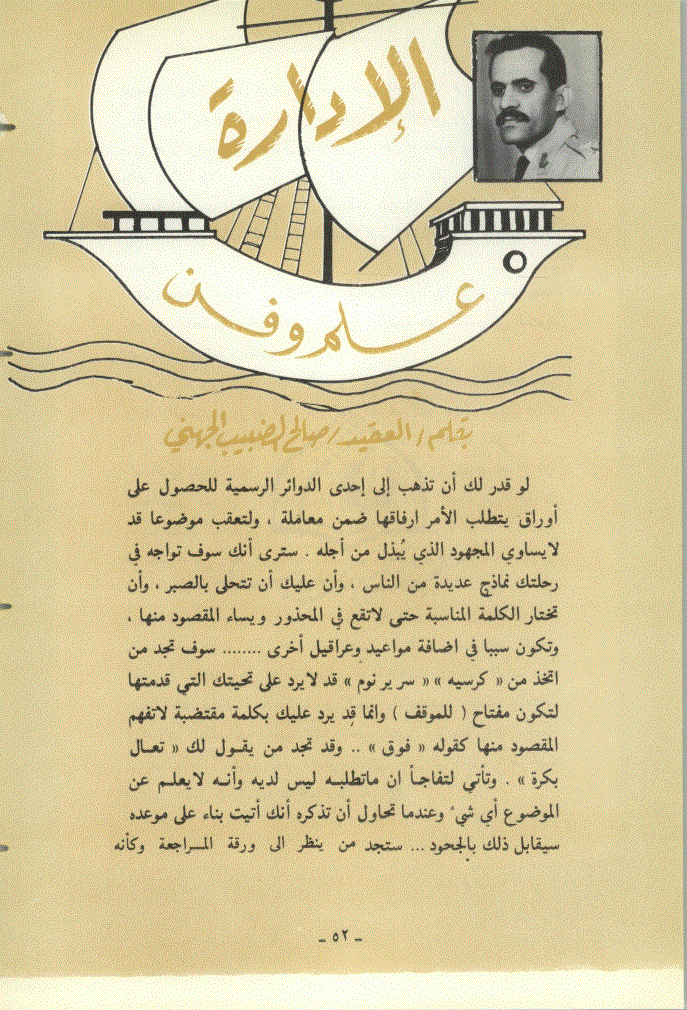 الإدارة
علم وفن
بقلم / العقيد / صالح الضبيب الجهني
لو قدر لك أن تذهب إلى إحدى الدوائر الرسمية للحصول على
أوراق يتطلب الأمر ارفاقها ضمن معاملة ، ولتعقب موضوعا قد
لايساوي المجهود الذي يُبذل من أجله . سترى أنك سوف تواجه في
رحلتك نماذج عديدة من الناس ، وأن عليك أن تتحلى بالصبر ، وأن
تختار الكلمة المناسبة حتى لاتقع في المحذور ويساء المقصود منها ،
وتكون سببا في اضافة مواعيد وعراقيل أخرى ........ سوف تجد من
اتخذ من « كرسيه » « سرير نوم » قد لايرد على تحيتك التي قدمتها
لتكون مفتاح ( للموقف ) وانما قد يرد عليك بكلمة مقتضبة لاتفهم
المقصود منها كقوله « فوق » .. وقد تجد من يقول لك « تعال
بكرة » . وتأتي لتفاجأ ان ماتطلبه ليس لديه وأنه لايعلم عن
الموضوع أي شيء وعندما تحاول أن تذكره أنك أتيت بناء على موعده
سيقابل ذلك بالجحود ... ستجد من ينظر الى ورقة المراجعة وكأنه
ـ ٥٢ ـ